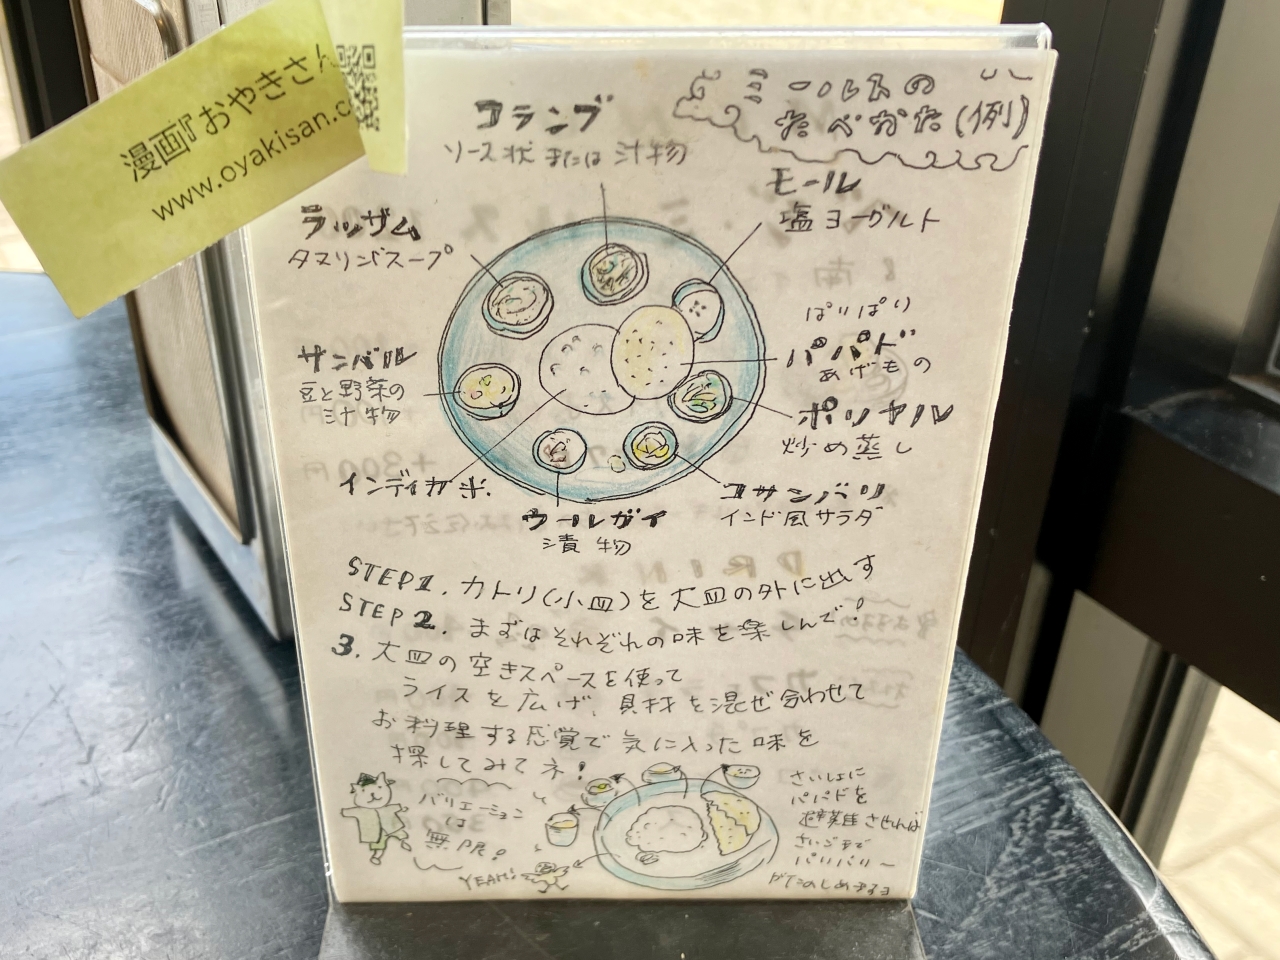 漫画『おやきさん
www.oyakisan.c
ミールスの
たべかた(例)
コランブ
ソース状または汁物
モール
塩ヨーグルト
ラッサム
タマリンドスープ
ぱりぱり
パパド
あげもの
サンバル
豆と野菜の
汁物
ポリヤル
炒め蒸し
インディカ米
コサンバリ
インド風サラダ
ウールガイ
漬物
STEP1. カトリ(小皿)を大皿の外に出す
STEP2. まずはそれぞれの味を楽しんで!
3. 大皿の空きスペースを使って
ライスを広げ、具材を混ぜ合わせて
お料理する感覚で気に入った味を
探してみてネ!
バリエーション
は
無限!
YEAH!
さいしょに
パパドを
避難させれば
さいごまで
パリパリ〜